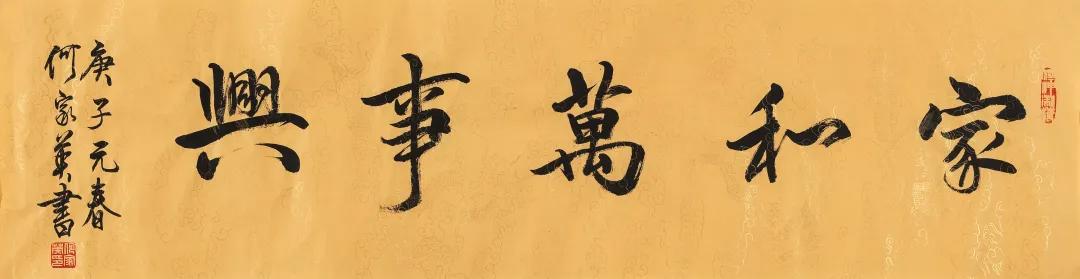 家和萬事興
庚子元春
何家英書